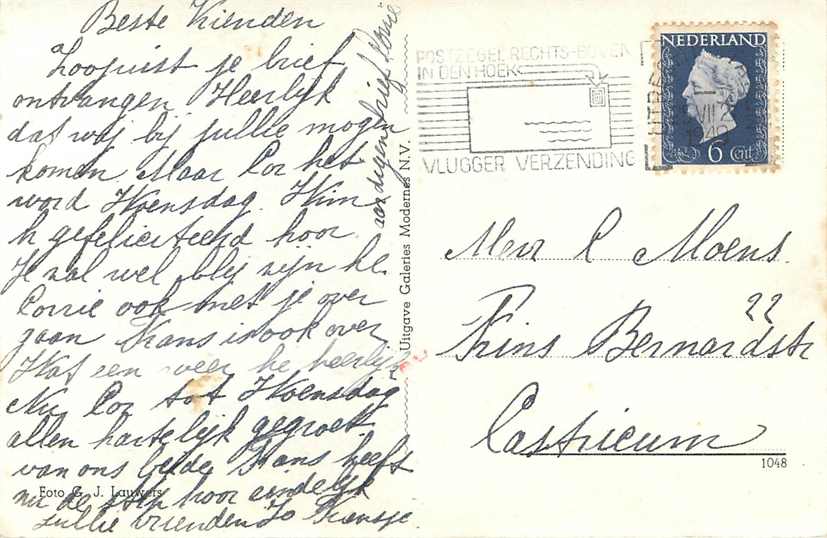 Beste Vrienden
Zoojuist je brief
ontvangen Heerlijk
dat wij bij jullie mogen
komen. Maar Cor het
word Woensdag. Wim
h gefeliciteerd hoor.
Je zal wel blij zijn hè
Corrie ook met je over
gaan Frans is ook over
Wat een weer he heerlijk
Nu Cor tot Woensdag
allen hartelijk gegroet
van ons beide Frans heeft
nu de hoor eindelijk
Jullie vrienden Jo Fransje.
Foto G. J. Lauwers
Uitgave Galeries Modernes N.V.
POSTZEGEL RECHTS-BOVEN
IN DEN HOEK
VLUGGER VERZENDING
NEDERLAND
6 Cent
UTRECHT
VII
Mevr C Moens.
Prins Bernardstr
22
Castricum
1048